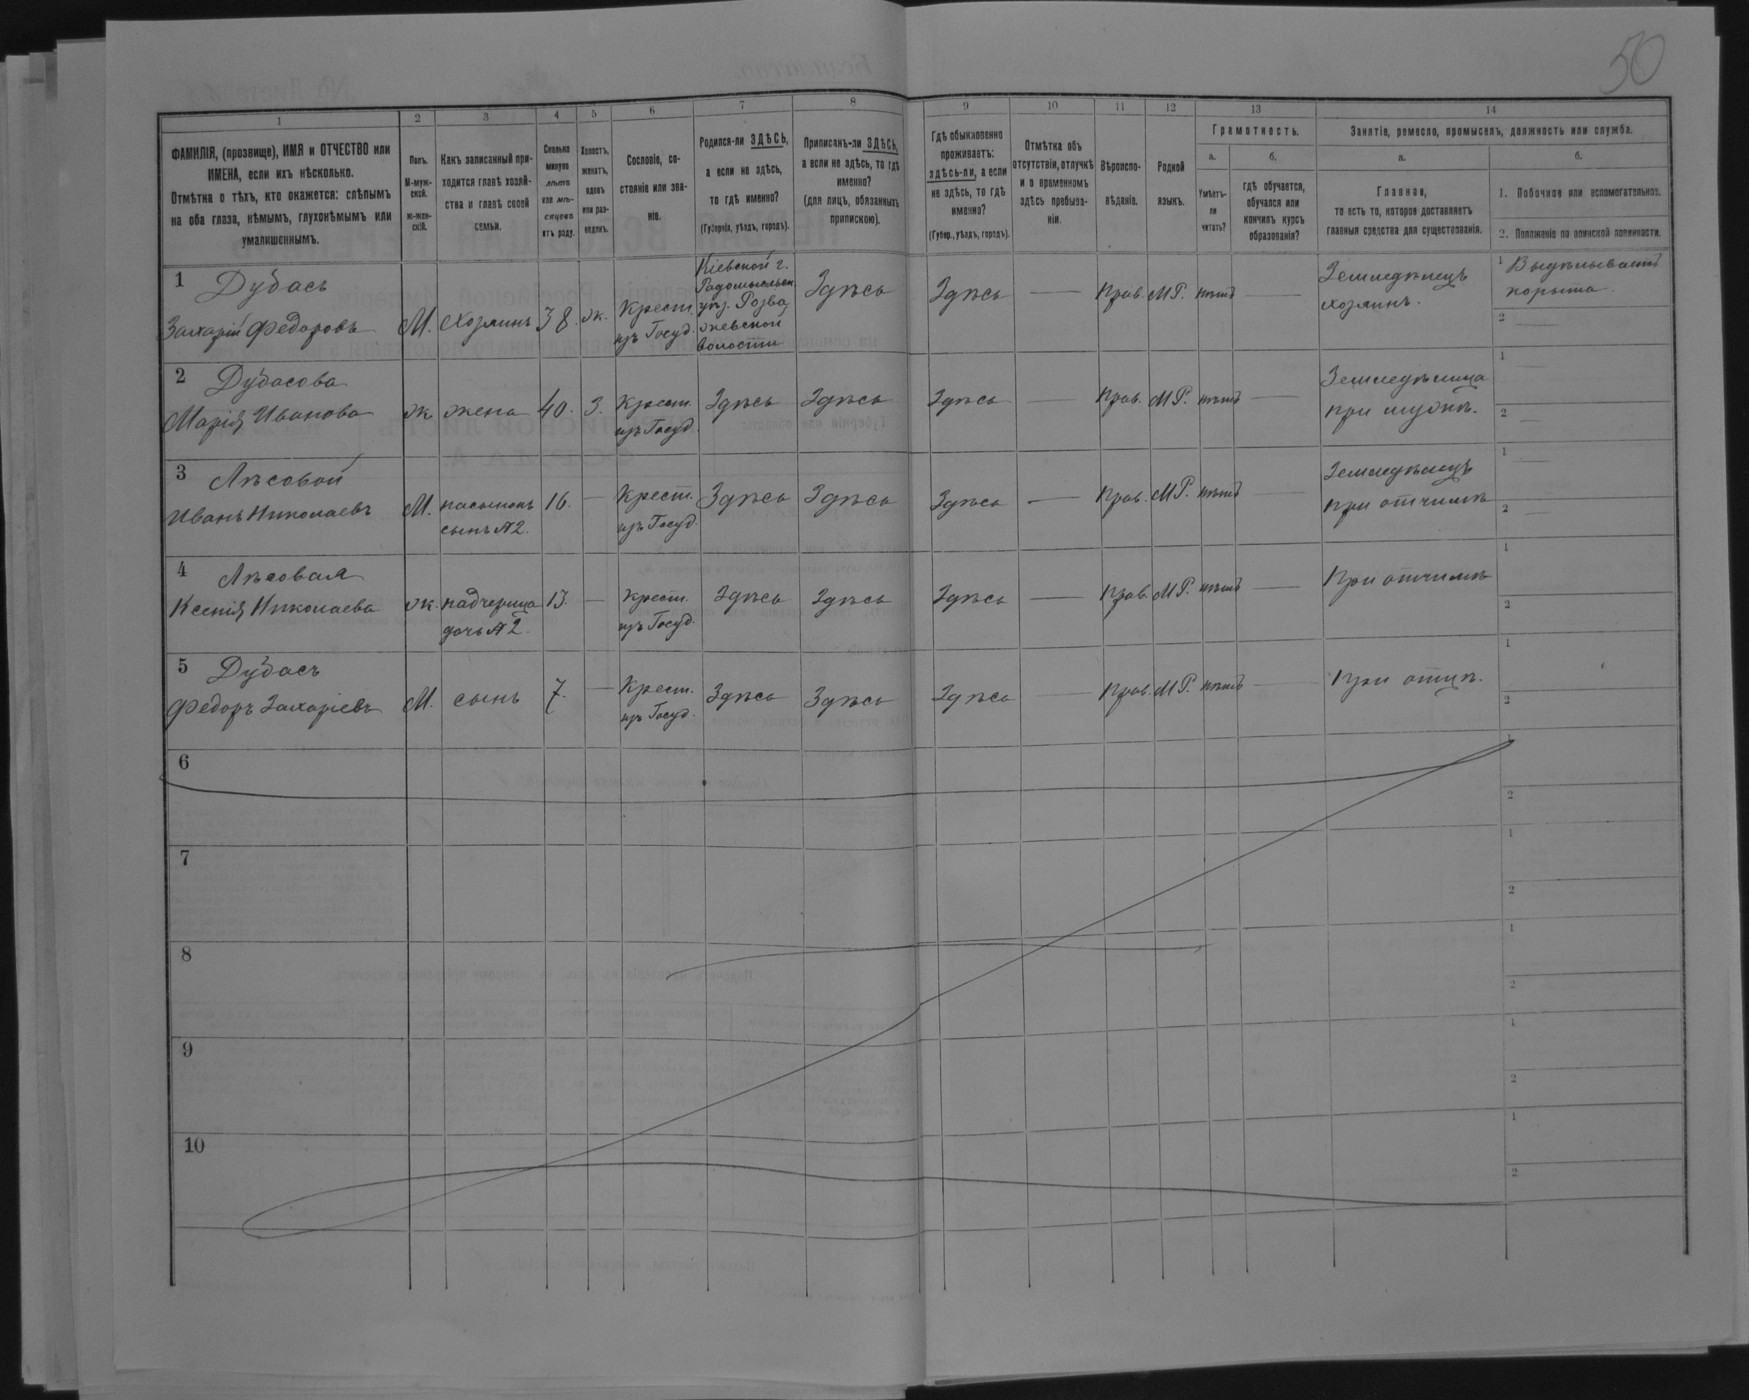 50
1
2
3
4
5
6
7
8
9
10
11
12
13
14
ФАМИЛІЯ, (прозвище), ИМЯ и ОТЧЕСТВО или
ИМЕНА, если ихъ нѣсколько.
Отмѣтка о тѣхъ, кто окажется: слѣпымъ
на оба глаза, нѣмымъ, глухонѣмымъ или
умалишеннымъ.
Полъ.
М-муж-
ской.
ж-жен-
скій.
Какъ записанный при-
ходится главѣ хозяй-
ства и главѣ своей
семьи.
Сколько
минуло
лѣтъ
или мѣ-
сяцевъ
отъ роду.
Холостъ,
женатъ,
вдовъ
или раз-
веденъ.
Сословіе, со-
стояніе или зва-
ніе.
Родился-ли ЗДѢСЬ,
а если не здѣсь,
то гдѣ именно?
(Губернія, уѣздъ, городъ).
Приписанъ-ли ЗДѢСЬ,
а если не здѣсь, то гдѣ
именно?
(для лицъ, обязанныхъ
припискою).
Гдѣ обыкновенно
проживаетъ:
здѣсь-ли, а если
не здѣсь, то гдѣ
именно?
(Губер., уѣздъ, городъ).
Отмѣтка объ
отсутствіи, отлучкѣ
и о временномъ
здѣсь пребыва-
ніи.
Вѣроиспо-
вѣданіе.
Родной
языкъ.
Грамотность.
а.
Умѣетъ-
ли
читать?
б.
гдѣ обучается,
обучался или
кончилъ курсъ
образованія?
Занятіе, ремесло, промыселъ, должность или служба.
а.
Главное,
то есть то, которое доставляетъ
главныя средства для существованія.
б.
1. Побочное или вспомогательное.
2. Положеніе по воинской повинности.
1 Дубасъ
Захарій Федоровъ
М.
Хозяинъ
38.
ж.
Крест.
изъ Госуд.
Кіевской г.
Радомысльск.
уѣз. Розва
жевской
волости
Здѣсь
Здѣсь
Прав.
МР.
нѣтъ
Земледѣлецъ
хозяинъ.
1 Выдѣлываетъ
корыта.
2
2 Дубасова
Марія Иванова
ж.
жена
40.
З.
Крест.
изъ Госуд.
Здѣсь
Здѣсь
Здѣсь
Прав.
МР.
нѣтъ
Земледѣлица
при мужѣ.
1
2
3 Лѣсовой
Иванъ Николаевъ
М.
пасынокъ
сынъ №2.
16.
Крест.
изъ Госуд.
Здѣсь
Здѣсь
Здѣсь
Прав.
МР.
нѣтъ
Земледѣлецъ
при отчимѣ
1
2
4 Лѣсовая
Ксенія Николаева
ж.
падчерица
дочь №2.
13.
Крест.
изъ Госуд.
Здѣсь
Здѣсь
Здѣсь
Прав.
МР.
нѣтъ
При отчимѣ
1
2
5 Дубасъ
Федоръ Захаріевъ
М.
сынъ
7.
Крест.
изъ Госуд.
Здѣсь
Здѣсь
Здѣсь
Прав.
МР.
нѣтъ
При отцѣ.
1
2
6
1
2
7
1
2
8
1
2
9
1
2
10
1
2